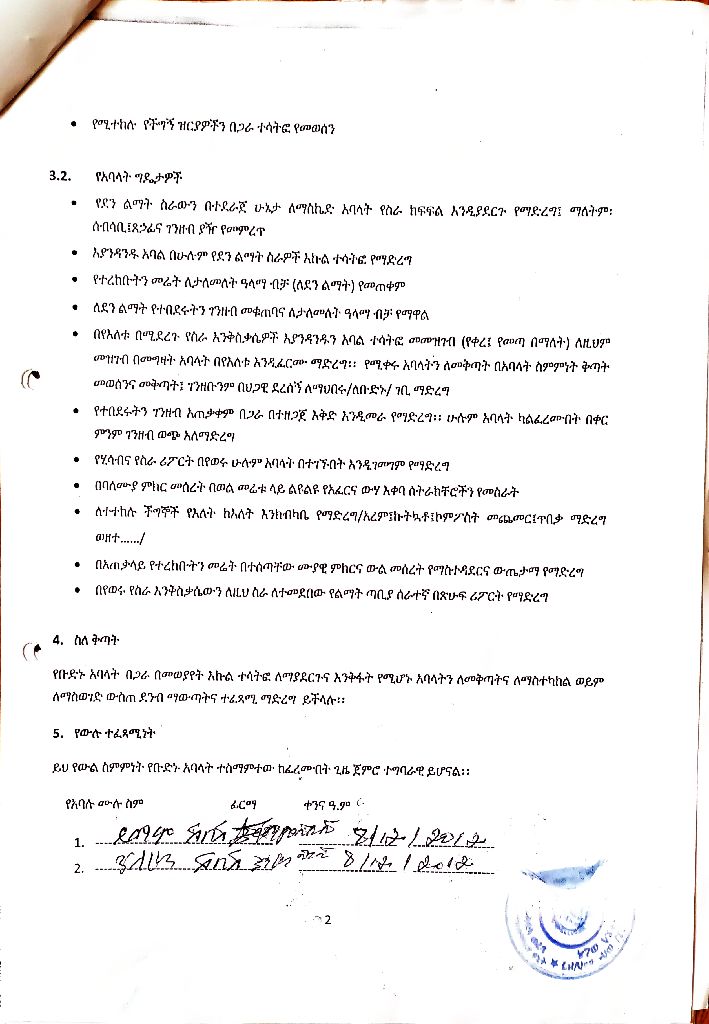 • የሚተከሉ የችግኝ ዝርያዎችን በጋራ ተሳትፎ የመወሰን
3.2. የአባላት ግዴታዎች
• የደን ልማት ስራውን በተደራጀ ሁኔታ ለማስኬድ አባላት የስራ ክፍፍል እንዲያደርጉ የማድረግ፤ ማለትም፡
ሰብሳቢ፤ጸኃፊና ገንዘብ ያዥ የመምረጥ
• እያንዳንዱ አባል በሁሉም የደን ልማት ስራዎች እኩል ተሳትፎ የማድረግ
• የተረከቡትን መሬት ለታለመለት ዓላማ ብቻ (ለደን ልማት) የመጠቀም
• ለደን ልማት የተበደሩትን ገንዘብ መቁጠባና ለታለመለት ዓላማ ብቻ የማዋል
• በየእለቱ በሚደረጉ የስራ እንቅስቃሴዎች እያንዳንዱን አባል ተሳትፎ መመዝገብ (የቀረ፤ የመጣ በማለት) ለዚህም
መዝገብ በመግዛት አባላት በየእለቱ እንዲፈርሙ ማድረግ፡፡ የሚቀሩ አባላትን ለመቅጣት በአባላት ስምምነት ቅጣት
መወሰንና መቅጣት፤ ገንዘቡንም በህጋዊ ደረሰኝ ለማህበሩ/ለቡድኑ/ ገቢ ማድረግ
• የተበደሩትን ገንዘብ አጠቃቀም በጋራ በተዘጋጀ እቅድ እንዲመራ የማድረግ፡፡ ሁሉም አባላት ካልፈረሙበት በቀር
ምንም ገንዘብ ወጭ አለማድረግ
• የሂሳብና የስራ ሪፖርት በየወሩ ሁሉም አባላት በተገኙበት እንዲገመገም የማድረግ
• በባለሙያ ምክር መሰረት በወል መሬቱ ላይ ልዩልዩ የአፈርና ውሃ እቀባ ስትራክቸሮችን የመስራት
• ለተተከሉ ችግኞች የእለት ከእለት እንክብካቤ የማድረግ/አረም፤ኩትኳቶ፤ኮምፖስት መጨመር፤ጥበቃ ማድረግ
ወዘተ....../
• በአጠቃላይ የተረከቡትን መሬት በተሰጣቸው ሙያዊ ምክርና ውል መሰረት የማስተዳደርና ውጤታማ የማድረግ
• በየወሩ የስራ እንቅስቃሴውን ለዚህ ስራ ለተመደበው የልማት ጣቢያ ሰራተኛ በጽሁፍ ሪፖርት የማድረግ
4. ስለ ቅጣት
የቡድኑ አባላት በጋራ በመወያየት እኩል ተሳትፎ ለማያደርጉና እንቅፋት የሚሆኑ አባላትን ለመቅጣትና ለማስተካከል ወይም
ለማስወገድ ውስጠ ደንብ ማውጣትና ተፈጻሚ ማድረግ ይችላሉ፡፡
5. የውሉ ተፈጻሚነት
ይህ የውል ስምምነት የቡድኑ አባላት ተስማምተው ከፈረሙበት ጊዜ ጀምሮ ተግባራዊ ይሆናል፡፡
የአባሉ ሙሉ ስም ፊርማ ቀንና ዓ.ም
1. 8/12/2012
2. 8/12/2012
2